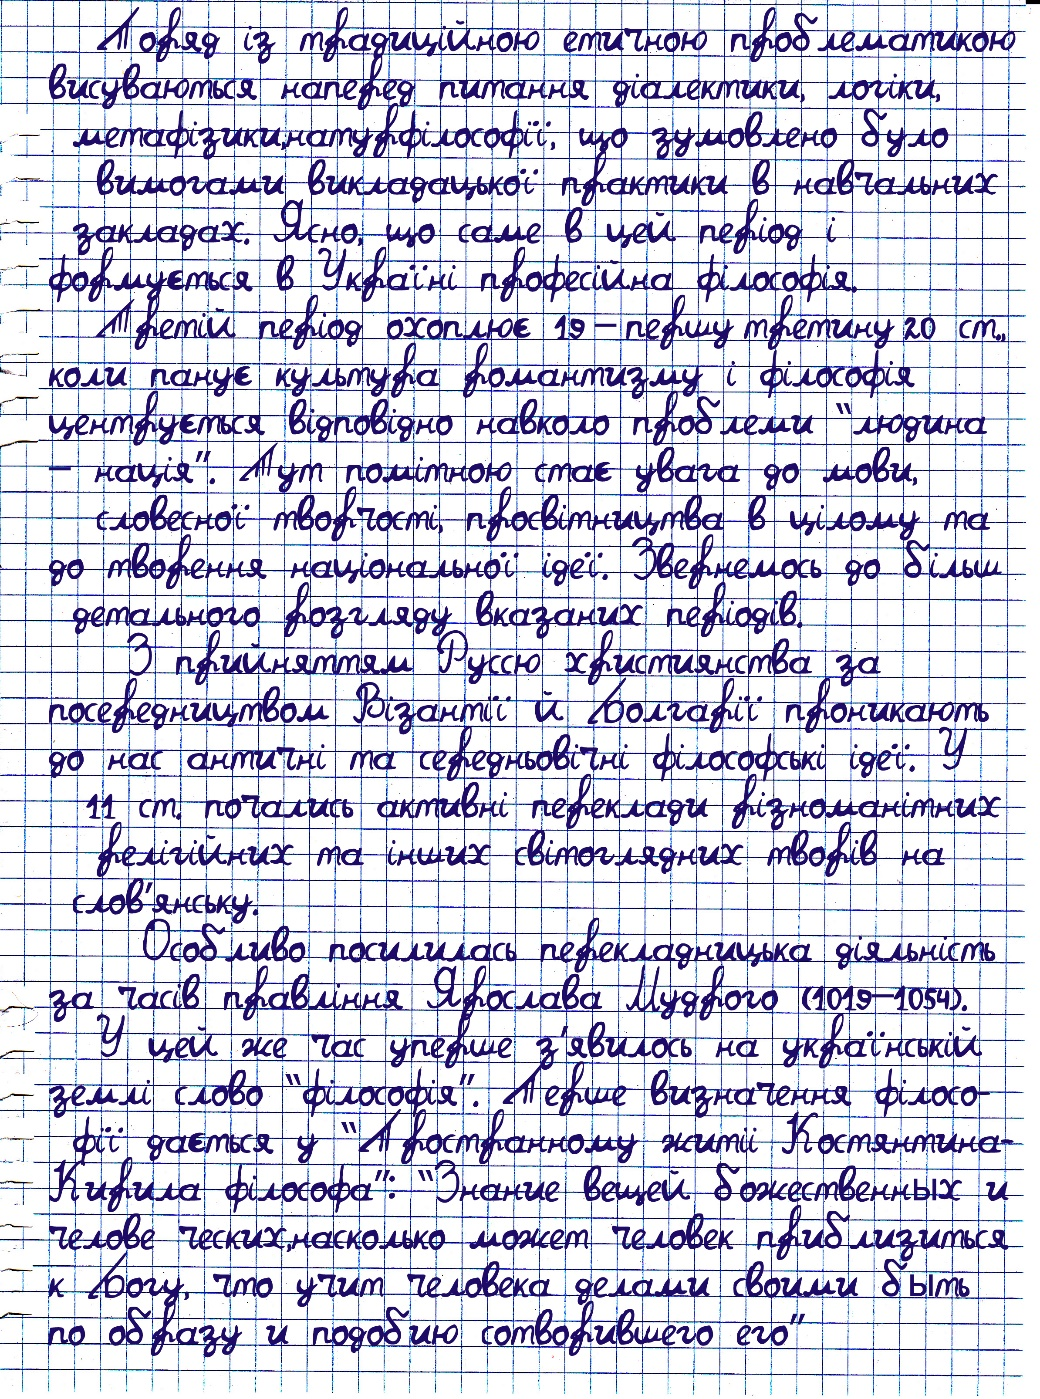 Поряд із традиційною етичною проблематикою
висуваються наперед питання діалектики, логіки,
метафізики,натурфілософії, що зумовлено було
вимогами викладацької практики в навчальних
закладах. Ясно, що саме в цей період і
формується в Україні професійна філософія.
Третій період охоплює 19 – першу третину 20 ст.,
коли панує культура романтизму і філософія
центрується відповідно навколо проблеми "людина
– нація". Тут помітною стає увага до мови,
словесної творчості, просвітництва в цілому та
до творення національної ідеї. Звернемось до більш
детального розгляду вказаних періодів.
З прийняттям Руссю християнства за
посередництвом Візантії й Болгарії проникають
до нас античні та середньовічні філософські ідеї. У
11 ст. почались активні переклади різноманітних
релігійних та інших світоглядних творів на
слов'янську.
Особливо посилилась перекладницька діяльність
за часів правління Ярослава Мудрого (1019–1054).
У цей же час уперше з'явилось на українській
землі слово "філософія". Перше визначення філосо-
фії дається у "Пространному житії Костянтина-
Кирила філософа": "Знание вещей божественных и
челове ческих,насколько может человек приблизиться
к Богу, что учит человека делами своими быть
по образу и подобию сотворившего его"